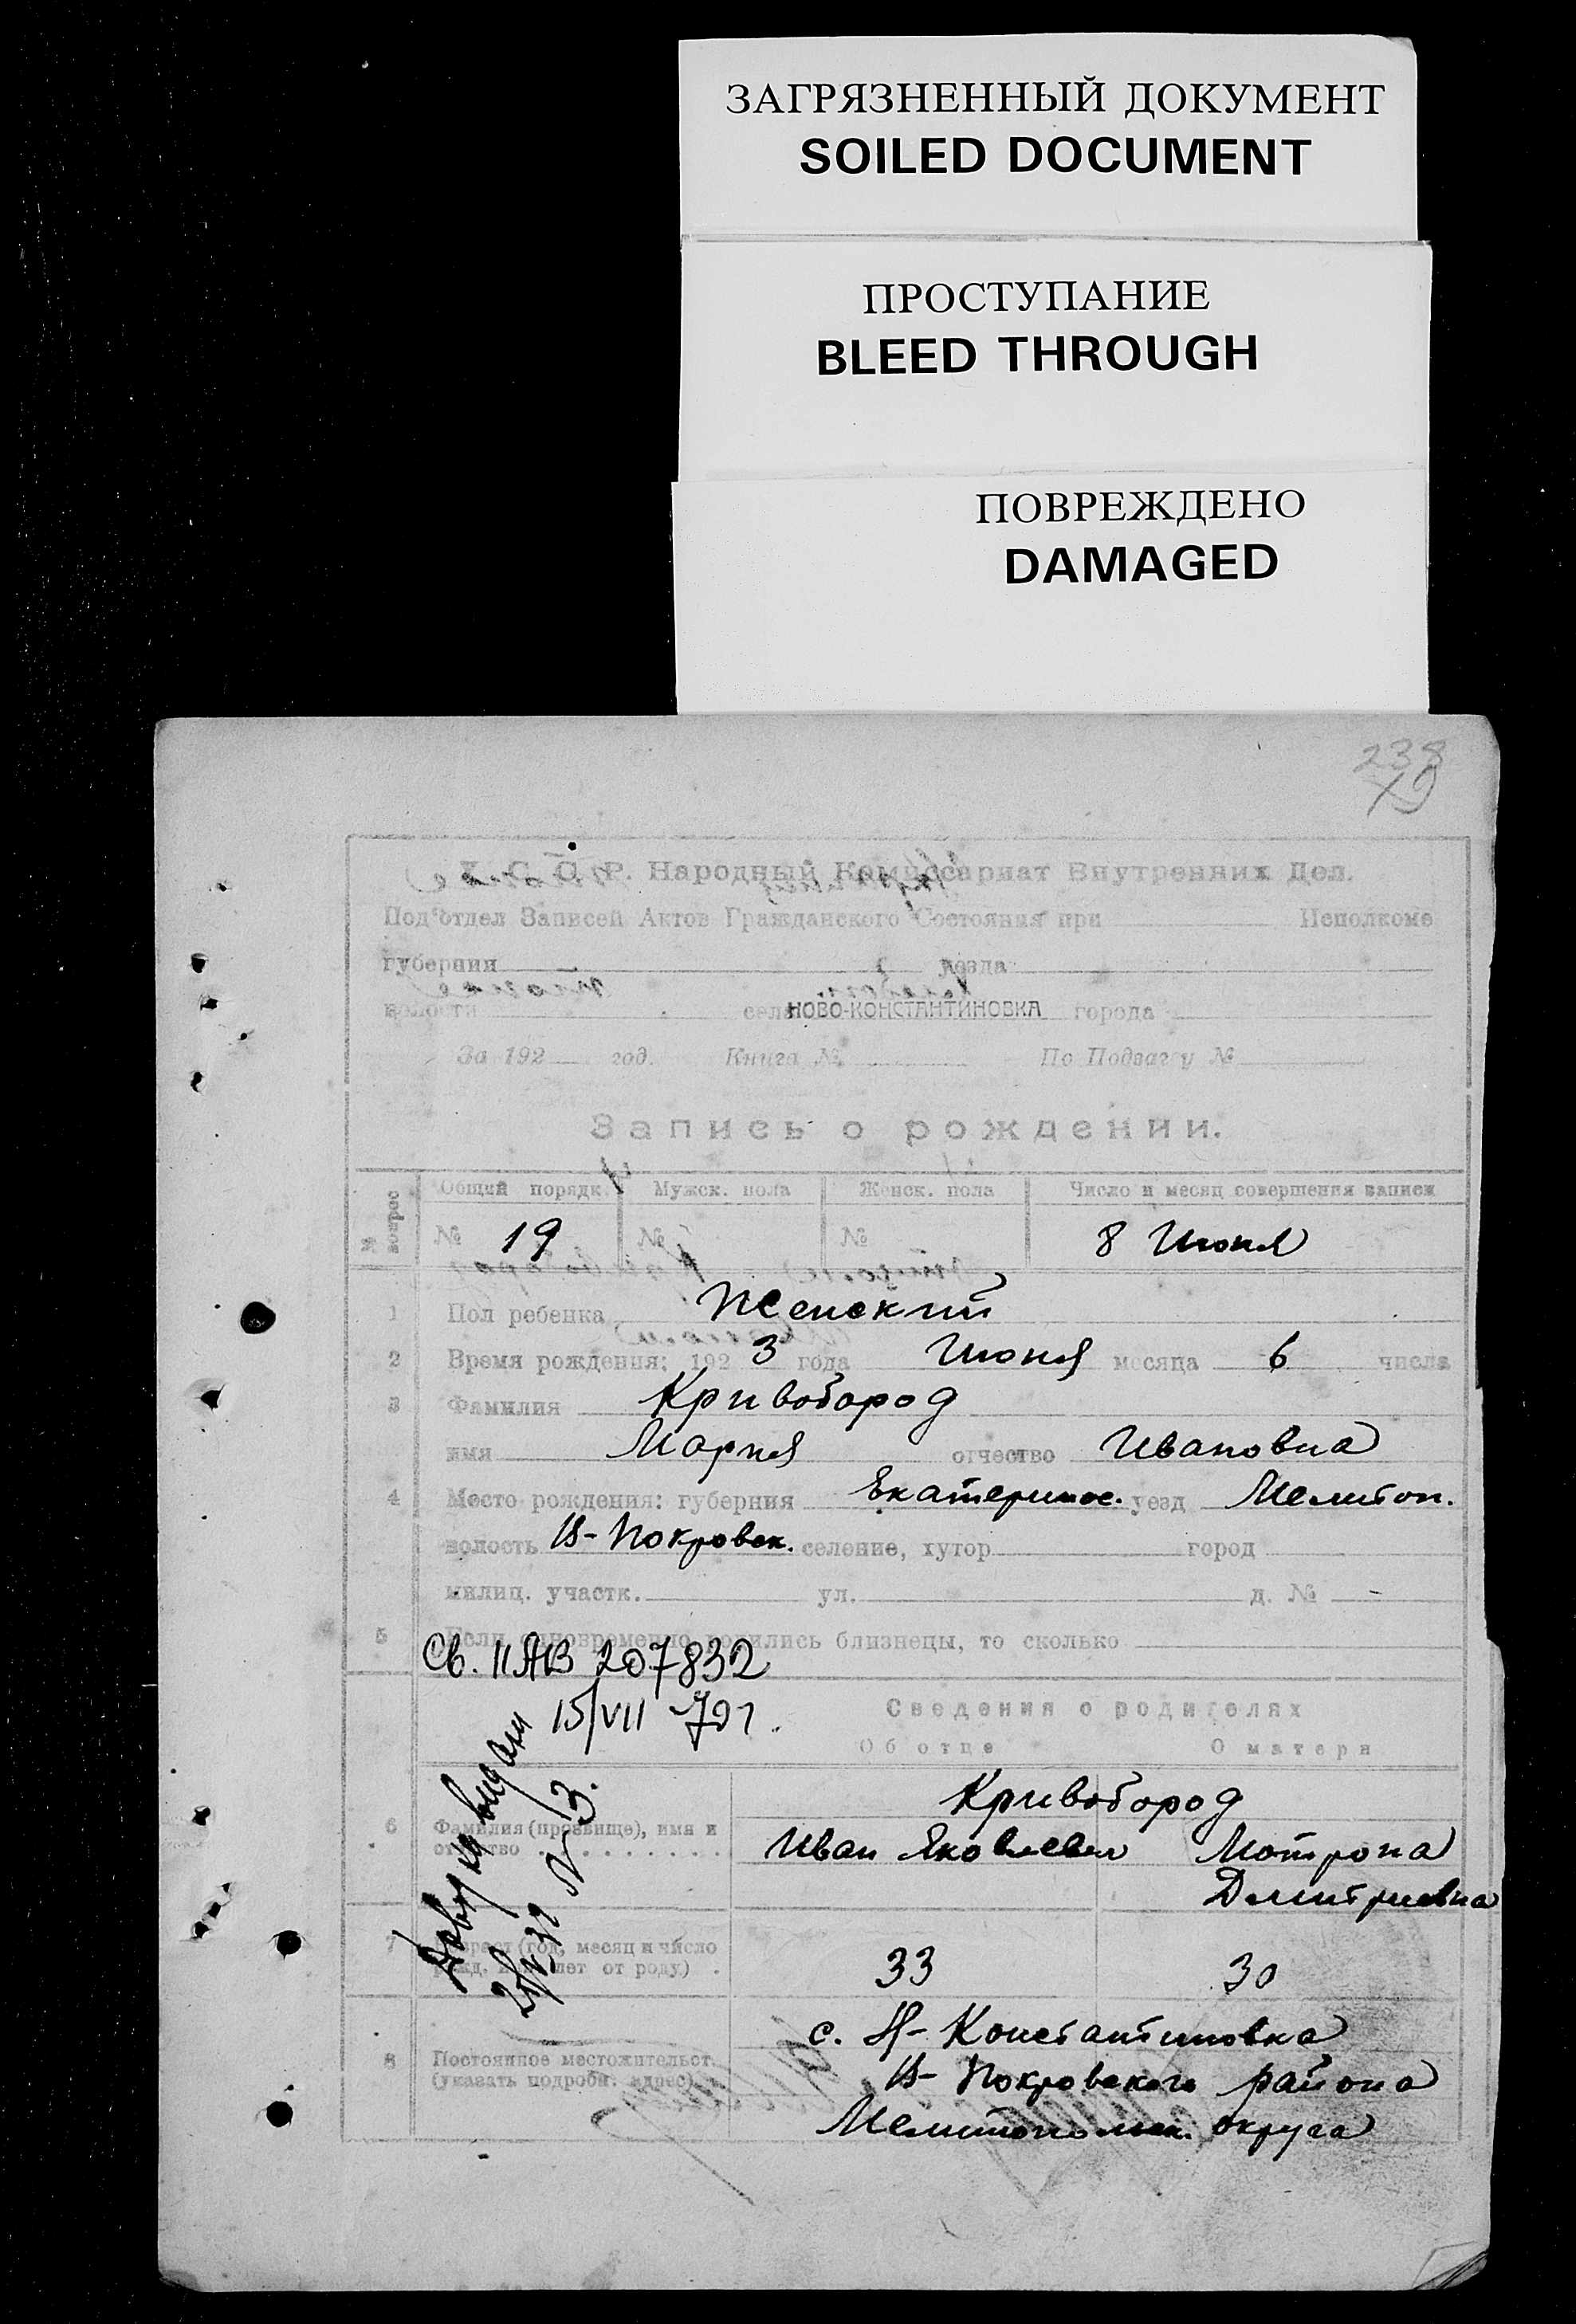 ЗАГРЯЗНЕННЫЙ ДОКУМЕНТ
SOILED DOCUMENT
ПРОСТУПАНИЕ
BLEED THROUGH
ПОВРЕЖДЕНО
DAMAGED
238
19
У. С. С. Р. Народный Комиссариат Внутренних Дел.
Под'отдел Записей Актов Гражданского Состояния при Исполкоме
губернии уезда
волости села НОВО-КОНСТАНТИНОВКА города
За 192 год. Книга № По Подвагу №
Запись о рождении.
№ вопрос Общий порядк. Мужск. пола Женск. пола Число и месяц совершения записи
№ 19 № № 8 Июня
1 Пол ребенка Женский
2 Время рождения: 192 3 года Июня месяца 6 числа
3 Фамилия Кривобород
имя Мария отчество Ивановна
4 Место рождения: губерния Екатеринос. уезд Мелитоп.
волость В-Покровск. селение, хутор город
милиц. участк. ул. д. №
5 Если одновременно родились близнецы, то сколько
Св. II АВ 207832
15/VII
Сведения о родителях
Об отце О матери
Кривобород
6 Фамилия (прозвище), имя и отчество
Иван Яковлевич Мотрона
Дмитриевна
7 Возраст (год, месяц и число рожд. или лет от роду) 33 30
с. Н-Константиновка
8 Постоянное местожительст. (указать подробн. адрес)
В-Покровского района
Мелитопольск. округа